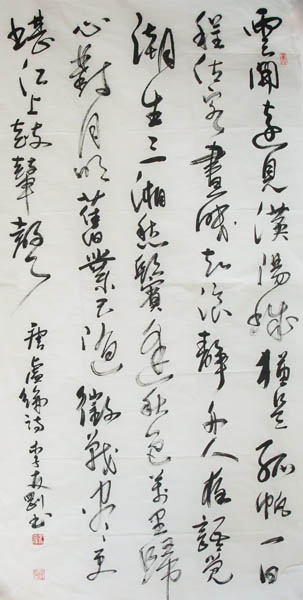 雲開遠見漢陽城猶是孤帆一日
程估客晝眠知浪靜舟人夜語覺
潮生三湘愁鬢逢秋色萬里歸
心對月明舊業已隨徵戰盡更
堪江上鼓鼙聲
唐盧綸詩李書